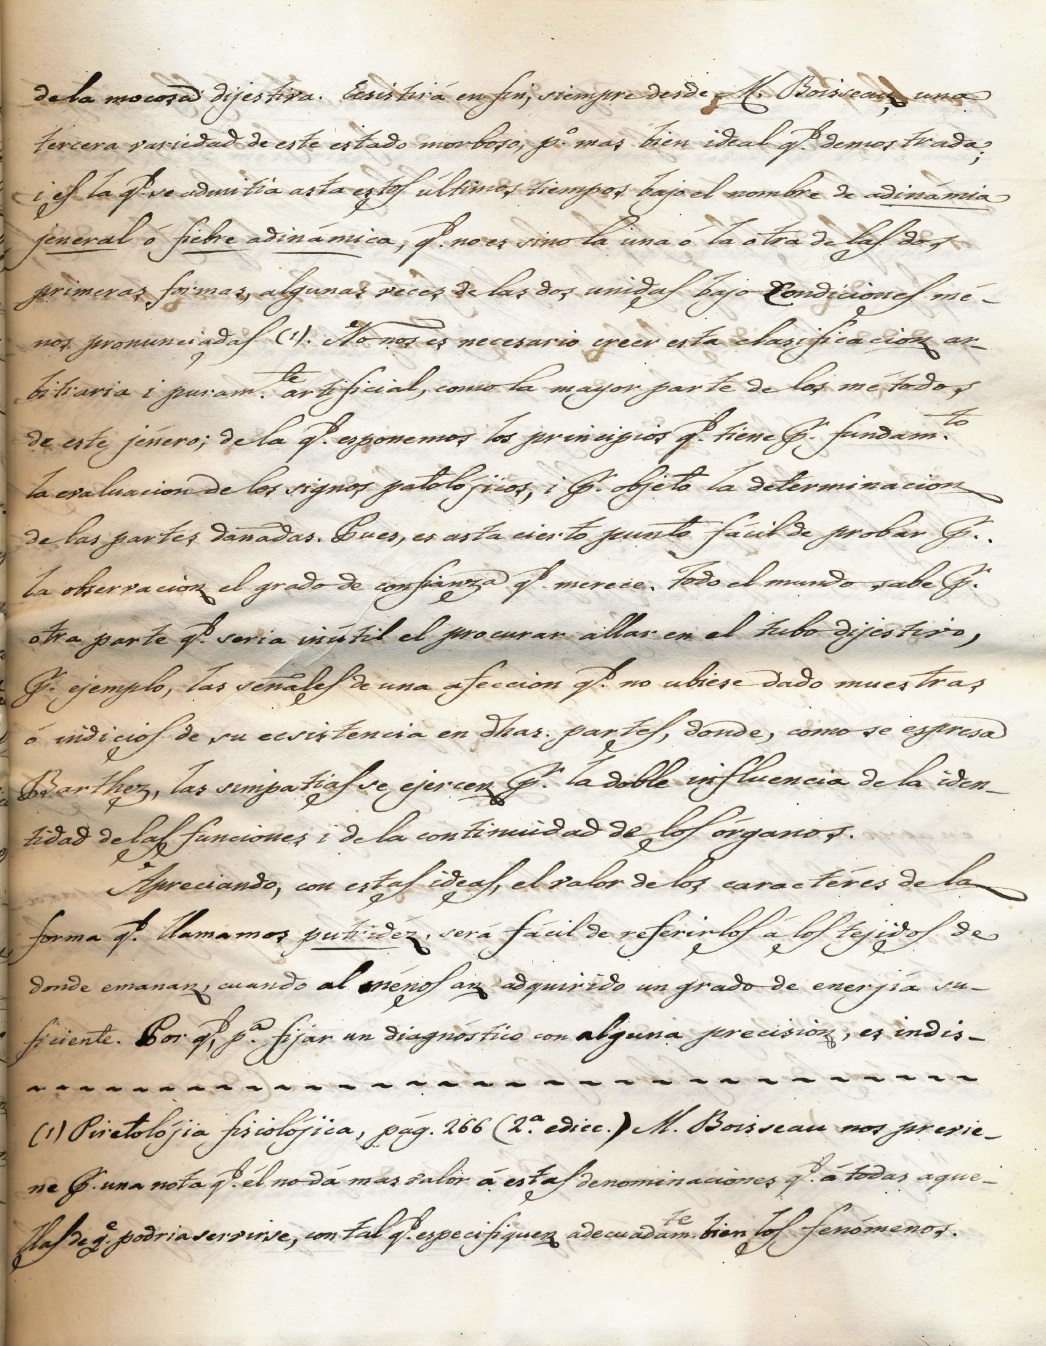 de la mocosa dijestiva. Ecsistirá en fin, siempre desde M. Boisseau, una
tercera variedad de este estado morboso, p.º mas bien ideal q.e demostrada;
i es la q.e se admitia asta estos últimos tiempos bajo el nombre de adinámia
jeneral ó fiebre adinámica, q.e no es sino la una ó la otra de las dos
primeras formas, algunas veces de las dos unidas bajo condiciones mé-
nos pronunciadas (1). No nos es necesario creer esta clasificacion ar-
bitraria i puram.te artificial, como la mayor parte de los métodos
de este jénero; de la q.e esponemos los principios q.e tiene p.r fundam.to
la evaluacion de los signos patolójicos, i p.r objeto la determinacion
de las partes dañadas. Pues, es asta cierto punto fácil de probar p.r
la observacion el grado de confianza q.e merece. Todo el mundo sabe p.r
otra parte q.e seria inútil el procurar allar en el tubo dijestivo,
p.r ejemplo, las señales de una afeccion q.e no ubiese dado muestras
ó indicios de su ecsistencia en dhas. partes, donde, como se espresa
Barthez, las simpatias se ejercen p.r la doble influencia de la iden-
tidad de las funciones i de la continuidad de los órganos.
Apreciando, con estas ideas, el valor de los caractéres de la
forma q.e llamamos putridez, será fácil de referirlos á los tejidos de
donde emanan, cuando al ménos an adquirido un grado de enerjia su-
ficiente. Por q.e, p.a fijar un diagnóstico con alguna precision, es indis-
(1) Piretolójia fisiolójica, pág. 266 (2.a edicc.) M. Boisseau nos previe-
ne p.r una nota q.e él no dá mas valor á estas denominaciones q.e á todas aque-
llas de q.e podria servirse, con tal q.e especifiquen adecuadam.te bien los fenómenos.